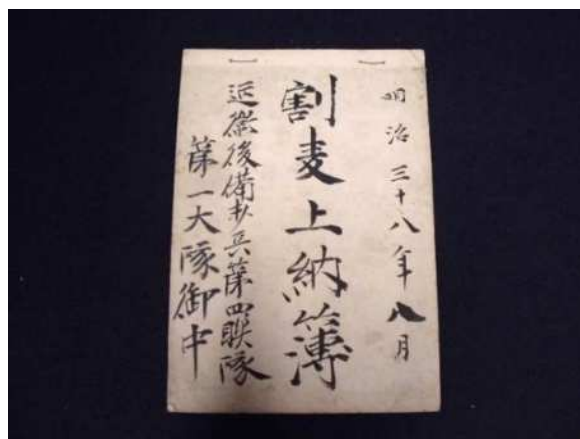 明治三十八年八月
割麦上納簿
近衛後備歩兵第四聯隊
第一大隊御中